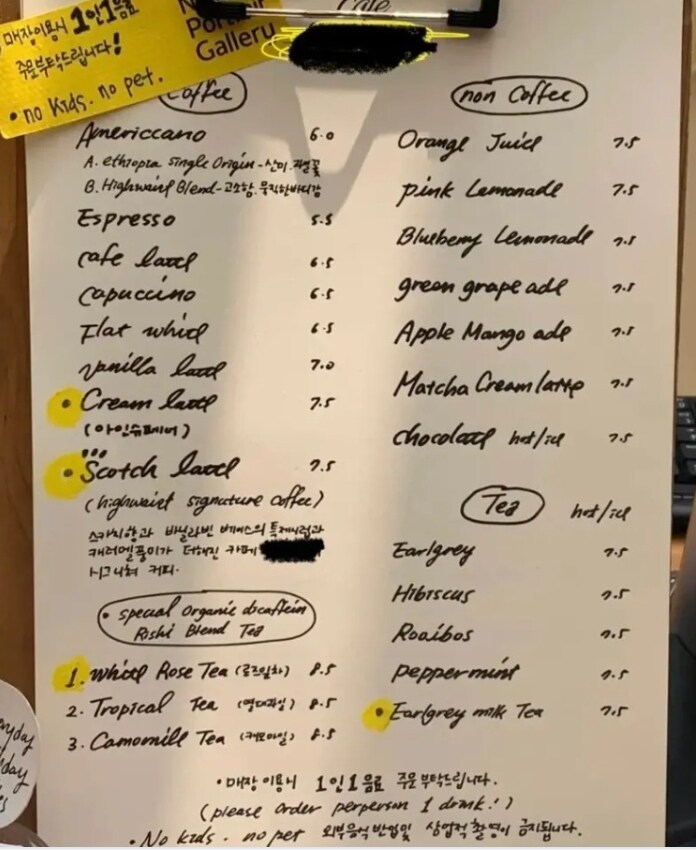 매장이용시 1인1음료
주문부탁드립니다!
• no kids. no pet.
Gallery
Cafe
Coffee
Americcano 6.0
A. ethiopia single Origin - 산미.
B. Highwaist Blend - 고소함. 묵직한바디감
Espresso 5.5
cafe latte 6.5
Capuccino 6.5
Flat white 6.5
vanilla latte 7.0
• Cream latte 7.5
(아인슈페너)
• Scotch latte 7.5
(highwaist signature coffee)
스카치향과 바닐라빈 베이스의 특제시럽과
캐러멜풍미가 더해진 카페
시그니처 커피.
• special Organic dicaffein
Rishi Blend Tea
1. White Rose Tea (로즈잎차) 8.5
2. Tropical Tea (열대과일) 8.5
3. Camomile Tea (캐모마일) 8.5
non Coffee
Orange Juice 7.5
pink Lemonade 7.5
Blueberry Lemonade 7.5
green grape ade 7.5
Apple Mango ade 7.5
Matcha Cream latte 7.5
chocolate hot/ice 7.5
Tea hot/ice
Earlgrey 7.5
Hibiscus 7.5
Rooibos 7.5
peppermint 7.5
• Earlgrey milk Tea 7.5
• 매장이용시 1인1음료 주문부탁드립니다.
(please order perperson 1 drink!)
• No kids. no pet 외부음식 반입및 상업적촬영이 금지됩니다.